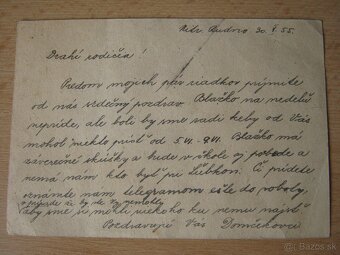 Nitr. Rudno 30. V. 55.
Drahí rodičia!
Predom mojich pár riadkov prijmite
od nás srdečný pozdrav. Blažko na nedeľu
nepríde, ale boli by sme radi keby od Vás
mohol niekto prísť od 5.VI.-9.VI. Blažko má
záverečné skúšky a bude v škole aj pobede a
nemá nám kto byť pri Ľubkovi. Či prídete
oznámte nám telegramom ešte do soboty,
v prípade že by ste vy nemohli
aby sme si mohli niekoho ku nemu nájsť
Pozdravujú Vás Domčekovci
bazar.sk